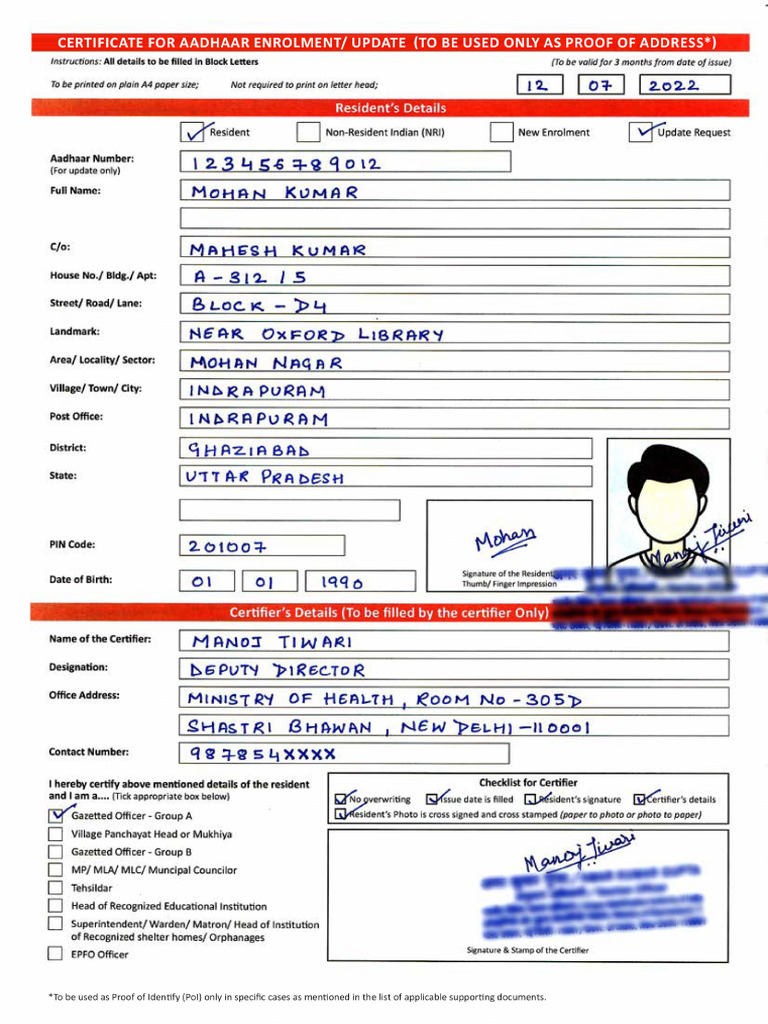 CERTIFICATE FOR AADHAAR ENROLMENT/ UPDATE (TO BE USED ONLY AS PROOF OF ADDRESS*)
Instructions: All details to be filled in Block Letters (To be valid for 3 months from date of issue)
To be printed on plain A4 paper size; Not required to print on letter head; 12 07 2022
Resident's Details
Resident Non-Resident Indian (NRI) New Enrolment Update Request
Aadhaar Number: 123456789012
(For update only)
Full Name: MOHAN KUMAR
C/o: MAHESH KUMAR
House No./ Bldg./ Apt: A-312/5
Street/ Road/ Lane: BLOCK-D4
Landmark: NEAR OXFORD LIBRARY
Area/ Locality/ Sector: MOHAN NAGAR
Village/ Town/ City: INDRAPURAM
Post Office: INDRAPURAM
District: GHAZIABAD
State: UTTAR PRADESH
PIN Code: 201007
Mohan
Manoj Tiwari
Signature of the Resident
Thumb/ Finger Impression
Date of Birth: 01 01 1990
Certifier's Details (To be filled by the certifier Only)
Name of the Certifier: MANOJ TIWARI
Designation: DEPUTY DIRECTOR
Office Address: MINISTRY OF HEALTH, ROOM NO-305D
SHASTRI BHAWAN, NEW DELHI-110001
Contact Number: 987854XXXX
I hereby certify above mentioned details of the resident
and I am a.... (Tick appropriate box below)
Gazetted Officer - Group A
Village Panchayat Head or Mukhiya
Gazetted Officer - Group B
MP/ MLA/ MLC/ Muncipal Councilor
Tehsildar
Head of Recognized Educational Institution
Superintendent/ Warden/ Matron/ Head of Institution
of Recognized shelter homes/ Orphanages
EPFO Officer
Checklist for Certifier
No overwriting Issue date is filled Resident's signature Certifier's details
Resident's Photo is cross signed and cross stamped (paper to photo or photo to paper)
Manoj Tiwari
Signature & Stamp of the Certifier
*To be used as Proof of Identify (PoI) only in specific cases as mentioned in the list of applicable supporting documents.